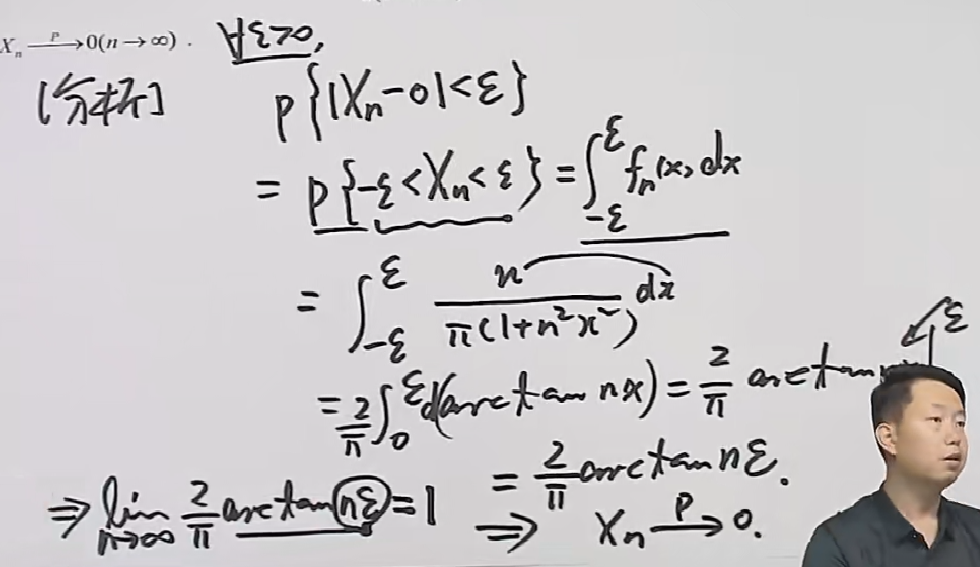 X_n —P→ 0(n→∞). ∀ε>0,
[分析] P{|X_n-0|<ε}
= P{-ε<X_n<ε} = ∫_{-ε}^{ε} f_n(x)dx
= ∫_{-ε}^{ε} n/(π(1+n²x²)) dx
= 2/π ∫_0^ε d(arctan nx) = 2/π arctan n ε
= 2/π arctan nε.
⇒ lim_{n→∞} 2/π arctan(nε) = 1 ⇒ X_n —P→ 0.